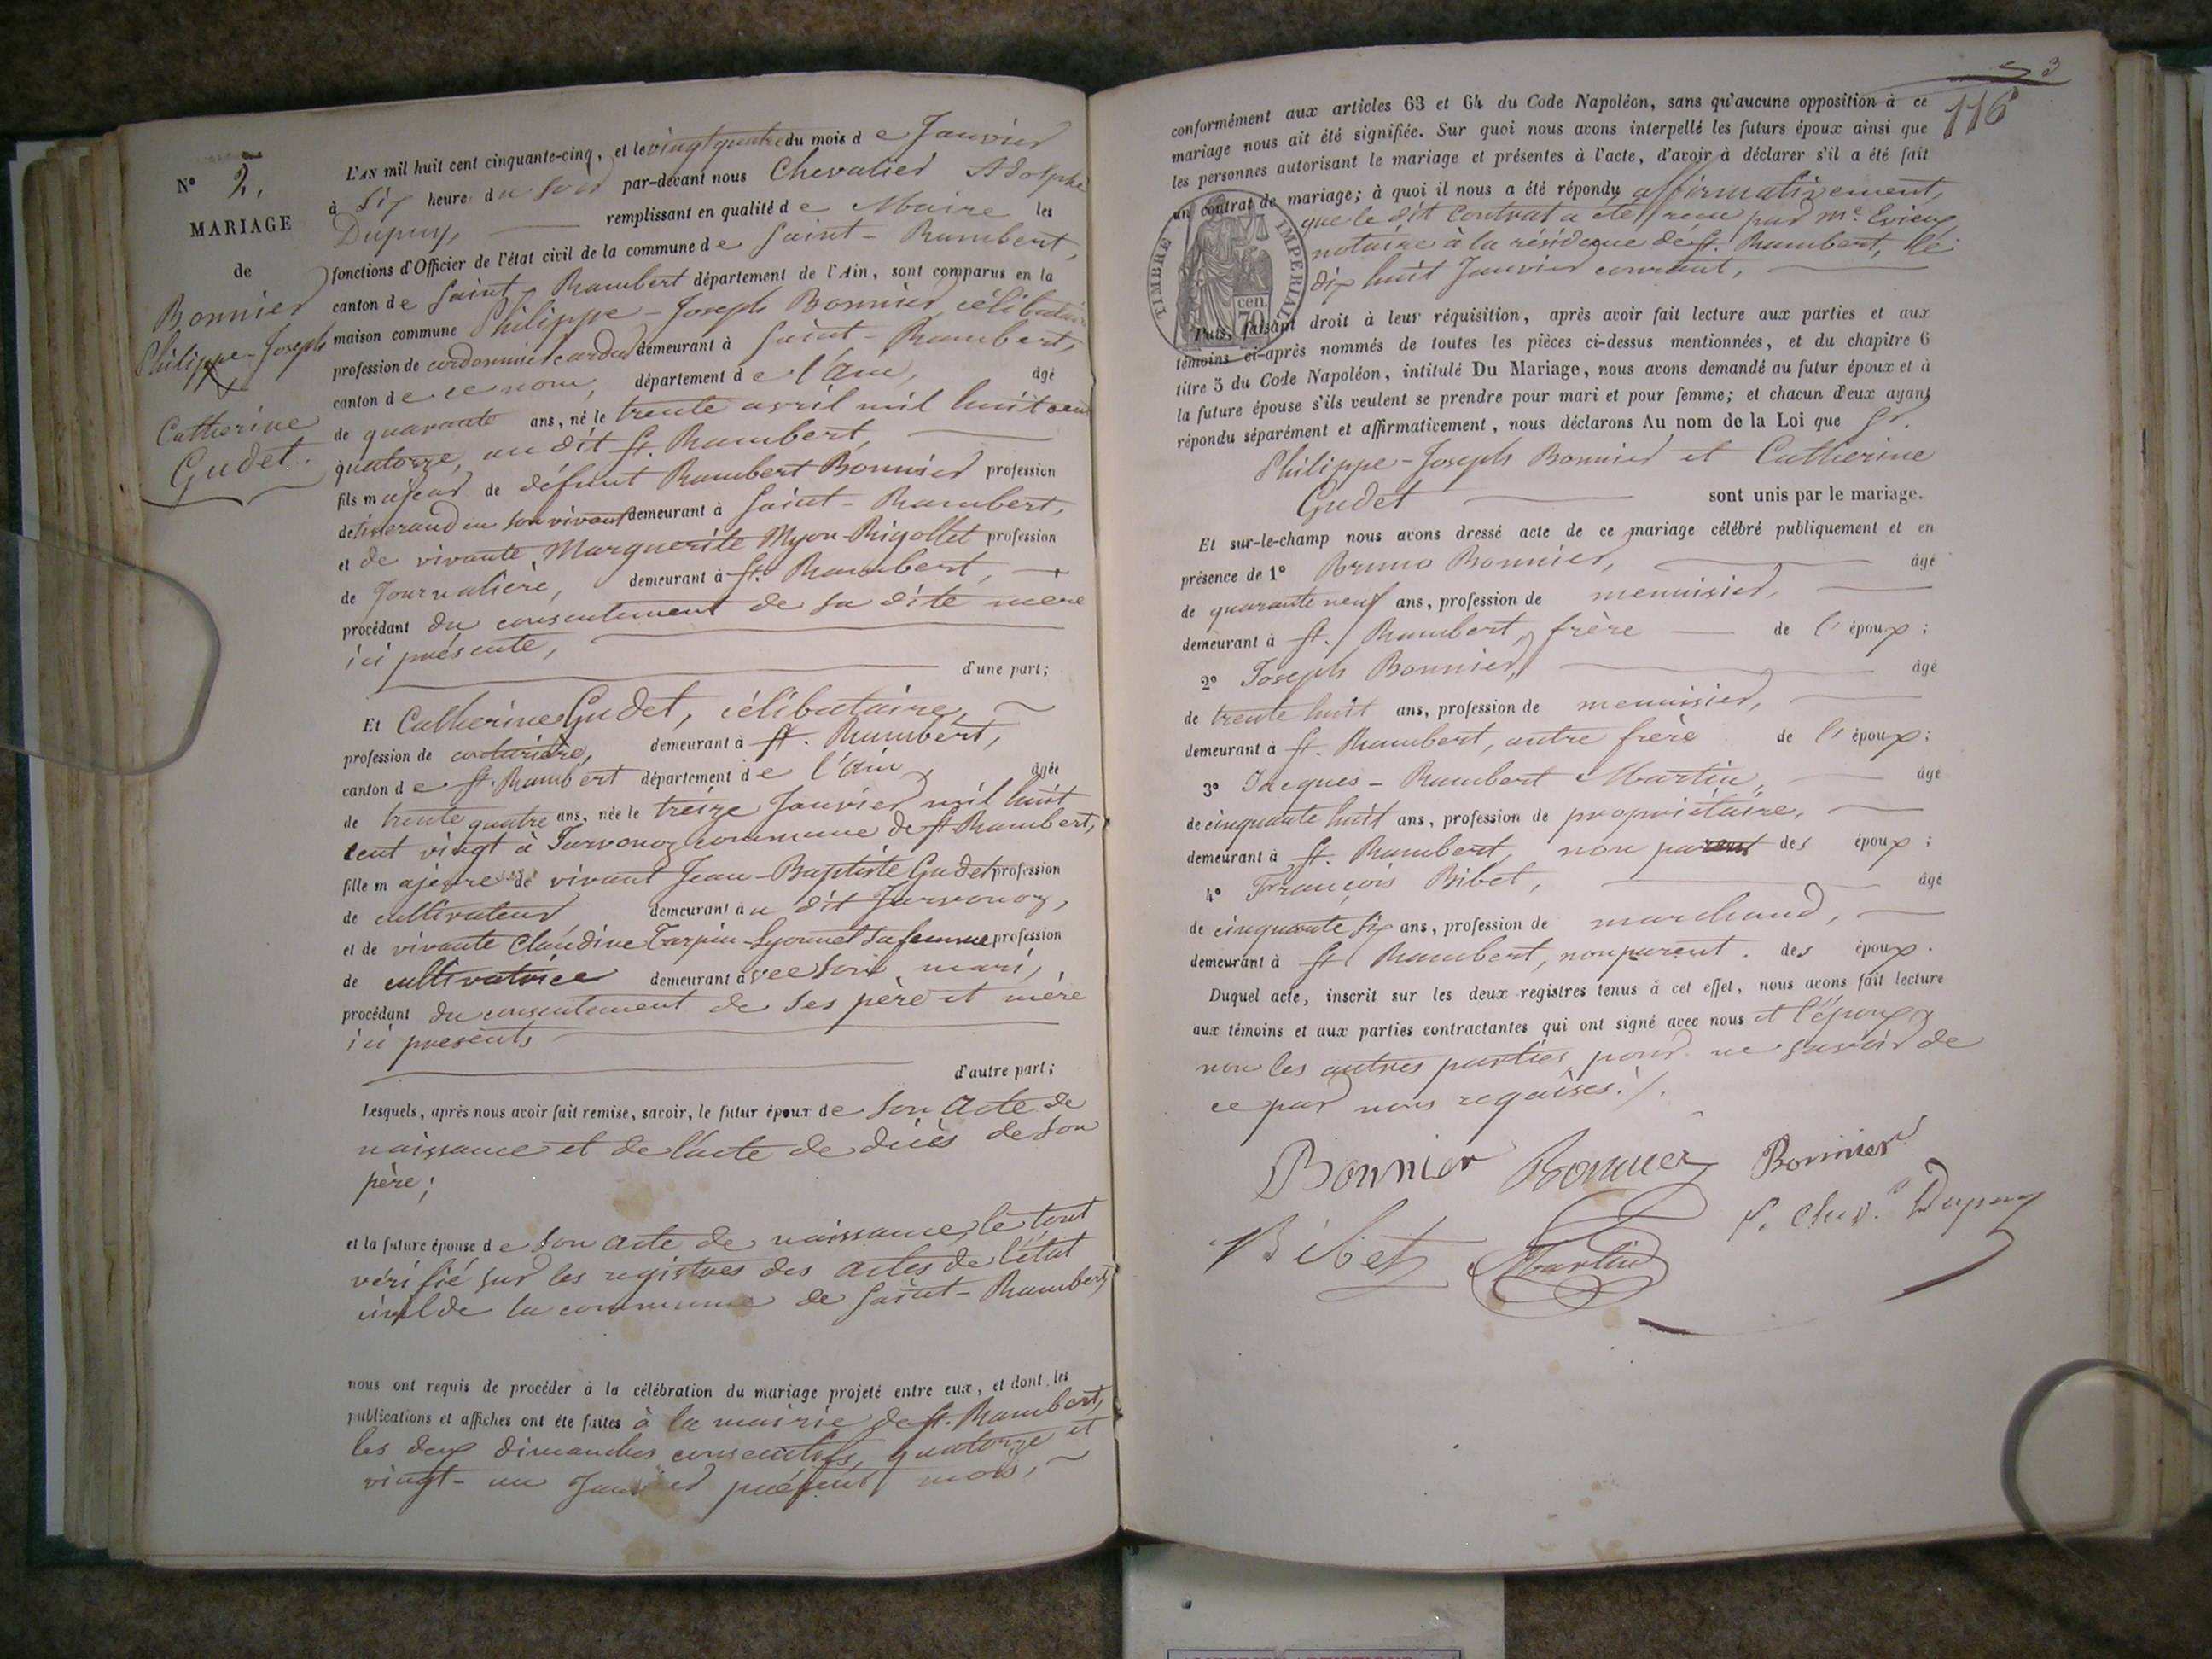 N° 2.
MARIAGE
de
Bonnier
Philippe-Joseph
Catherine
Gudet.
L'AN mil huit cent cinquante-cinq, et le vingt quatre du mois de Janvier
à six heure du soir par-devant nous Chevalier Adolphe
Dupuy, remplissant en qualité de Maire les
fonctions d'Officier de l'état civil de la commune de Saint-Rambert,
canton de Saint-Rambert département de l'Ain, sont comparus en la
maison commune Philippe-Joseph Bonnier, célibataire
profession de cordonnier demeurant à Saint-Rambert,
canton de ce nom, département de l'Ain, âgé
de quarante ans, né le trente avril mil huit cent
quatorze, au dit St. Rambert,
fils majeur de défunt Rambert Bonnier profession
de tisserand en son vivant demeurant à Saint-Rambert,
et de vivante Marguerite Myon-Rigollet profession
de Journalière, demeurant à St. Rambert,
procédant du consentement de sa dite mère
ici présente,
d'une part;
Et Catherine Gudet, célibataire,
profession de couturière, demeurant à St. Rambert,
canton de St. Rambert département de l'Ain, âgée
de trente quatre ans, née le treize Janvier mil huit
cent vingt à Javornoz commune de St Rambert,
fille majeure de vivant Jean-Baptiste Gudet profession
de cultivateur demeurant au dit Javornoz,
et de vivante Claudine Tarpin-Lyonnet sa femme profession
de cultivatrice demeurant avec son mari,
procédant du consentement de ses père et mère
ici présents
d'autre part;
Lesquels, après nous avoir fait remise, savoir, le futur époux de son acte de
naissance et de l'acte de décès de son
père;
et la future épouse de son acte de naissance, le tout
vérifié sur les registres des actes de l'état
civil de la commune de Saint-Rambert,
nous ont requis de procéder à la célébration du mariage projeté entre eux, et dont les
publications et affiches ont été faites à la mairie de St. Rambert,
les deux dimanches consécutifs, quatorze et
vingt-un Janvier présent mois,
3
116
conformément aux articles 63 et 64 du Code Napoléon, sans qu'aucune opposition à ce
mariage nous ait été signifiée. Sur quoi nous avons interpellé les futurs époux ainsi que
les personnes autorisant le mariage et présentes à l'acte, d'avoir à déclarer s'il a été fait
un contrat de mariage; à quoi il nous a été répondu affirmativement,
que le dit contrat a été reçu par Me. Evieux
notaire à la résidence de St. Rambert, le
dix huit Janvier courant,
TIMBRE IMPERIAL
70 cen.
Puis, faisant droit à leur réquisition, après avoir fait lecture aux parties et aux
témoins ci-après nommés de toutes les pièces ci-dessus mentionnées, et du chapitre 6
titre 5 du Code Napoléon, intitulé Du Mariage, nous avons demandé au futur époux et à
la future épouse s'ils veulent se prendre pour mari et pour femme; et chacun d'eux ayant
répondu séparément et affirmativement, nous déclarons Au nom de la Loi que Sr.
Philippe-Joseph Bonnier et Catherine
Gudet sont unis par le mariage.
Et sur-le-champ nous avons dressé acte de ce mariage célébré publiquement et en
présence de 1° Bruno Bonnier, âgé
de quarante neuf ans, profession de menuisier,
demeurant à St. Rambert, frère de l'époux;
2° Joseph Bonnier, âgé
de trente huit ans, profession de menuisier,
demeurant à St. Rambert, autre frère de l'époux;
3° Jacques-Rambert Martin, âgé
de cinquante huit ans, profession de propriétaire,
demeurant à St. Rambert, non parent des époux;
4° François Bibet, âgé
de cinquante six ans, profession de marchand,
demeurant à St Rambert, non parent. des époux.
Duquel acte, inscrit sur les deux registres tenus à cet effet, nous avons fait lecture
aux témoins et aux parties contractantes qui ont signé avec nous et l'époux,
non les autres parties pour ne savoir de
ce par nous requises./.
Bonnier Bonnier Bonnier
Bibet Martin Dupuy